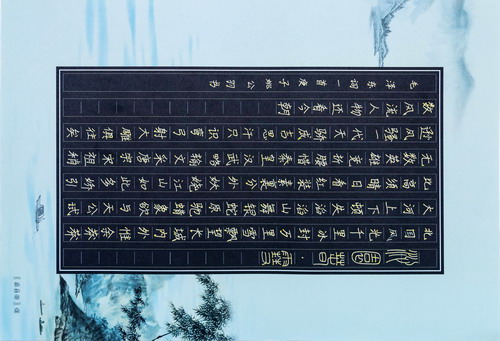 沁园春·雪
北国风光千里冰封万里雪飘望长城内外惟余莽莽
大河上下顿失滔滔山舞银蛇原驰蜡象欲与天公试
比高须晴日看红装素裹分外妖娆江山如此多娇引
无数英雄竞折腰惜秦皇汉武略输文采唐宗宋祖稍
逊风骚一代天骄成吉思汗只识弯弓射大雕俱往矣
数风流人物还看今朝
毛泽东词一首庚子姚公羽书